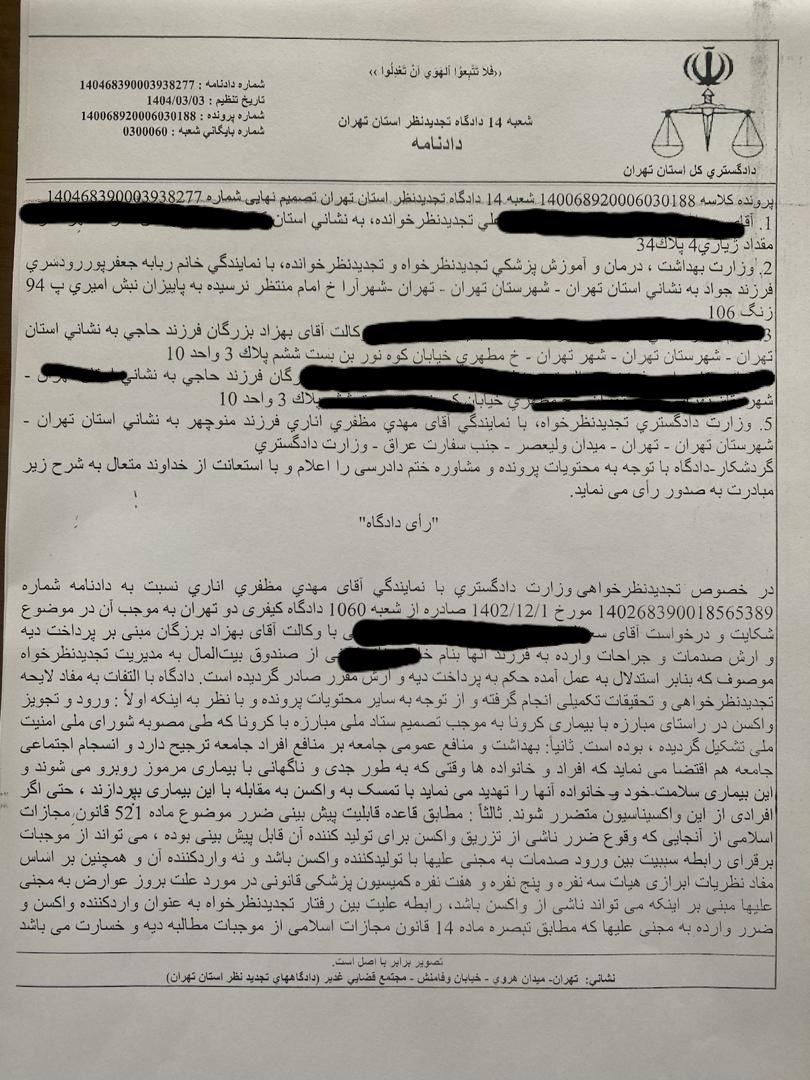 ‹‹فَلا تَتَّبِعوُا اَلهَوَي اَنْ تَعْدِلُوا ››
شماره دادنامه : 140468390003938277
تاریخ تنظیم : 1404/03/03
شماره پرونده : 140068920006030188
شماره بایگاني شعبه : 0300060
شعبه 14 دادگاه تجدیدنظر استان تهران
دادنامه
دادگستري کل استان تهران
پرونده کلاسه 140068920006030188 شعبه 14 دادگاه تجدیدنظر استان تهران تصمیم نهایي شماره 140468390003938277
1. آقاي علي تجدیدنظرخوانده، به نشاني استان
مقداد زیاري4 پلاك34
2. وزارت بهداشت ، درمان و آموزش پزشکي تجدیدنظرخواه و تجدیدنظرخوانده، با نمایندگي خانم ربابه جعفرپوررودسَري
فرزند جواد به نشاني استان تهران - شهرستان تهران - تهران -شهرآرا خ امام منتظر نرسیده به پاییزان نبش امیري پ 94
زنگ 106
3 کالت آقای بهزاد بزرگان فرزند حاجي به نشاني استان
تهران - شهرستان تهران - شهر تهران - خ مطهري خیابان کوه نور بن بست ششم پلاك 3 واحد 10
رگان فرزند حاجي به نشاني تهران -
شهر مطهري خیابان پلاك 3 واحد 10
5. وزارت دادگستري تجدیدنظرخواه، با نمایندگي آقای مهدي مظفري اناري فرزند منوچهر به نشاني استان تهران -
شهرستان تهران - تهران - میدان ولیعصر - جنب سفارت عراق - وزارت دادگستري
گردشکار-دادگاه با توجه به محتویات پرونده و مشاوره ختم دادرسی را اعلام و با استعانت از خداوند متعال به شرح زیر
مبادرت به صدور رأی می نماید.
"رأی دادگاه"
در خصوص تجدیدنظرخواهی وزارت دادگستري با نمایندگي آقای مهدي مظفري اناري نسبت به دادنامه شماره
140268390018565389 مورخ 1402/12/1 صادره از شعبه 1060 دادگاه کیفری دو تهران به موجب آن در موضوع
شکایت و درخواست آقای با وکالت آقای بهزاد برزگان مبنی بر پرداخت دیه
و ارش صدمات و جراحات وارده به فرزند آنها بنام از صندوق بیت‌المال به مدیریت تجدیدنظرخواه
موصوف که بنابر استدلال به عمل آمده حکم به پرداخت دیه و ارش مقرر صادر گردیده است. دادگاه با التفات به مفاد لایحه
تجدیدنظرخواهی و تحقیقات تکمیلی انجام گرفته و از توجه به سایر محتویات پرونده و با نظر به اینکه اولاً : ورود و تجویز
واکسن در راستای مبارزه با بیماری کرونا به موجب تصمیم ستاد ملی مبارزه با کرونا که طی مصوبه شورای ملی امنیت
ملی تشکیل گردیده ، بوده است. ثانیاً: بهداشت و منافع عمومی جامعه بر منافع افراد جامعه ترجیح دارد و انسجام اجتماعی
جامعه هم اقتضا می نماید که افراد و خانواده ها وقتی که به طور جدی و ناگهانی با بیماری مرموز روبرو می شوند و
این بیماری سلامت خود و خانواده آنها را تهدید می نماید با تمسک به واکسن به مقابله با این بیماری بپردازند ، حتی اگر
افرادی از این واکسیناسیون متضرر شوند. ثالثاً : مطابق قاعده قابلیت پیش بینی ضرر موضوع ماده 521 قانون مجازات
اسلامی از آنجایی که وقوع ضرر ناشی از تزریق واکسن برای تولید کننده آن قابل پیش بینی بوده ، می تواند از موجبات
برقرای رابطه سببیت بین ورود صدمات به مجنی علیها با تولیدکننده واکسن باشد و نه واردکننده آن و همچنین بر اساس
مفاد نظریات ابرازی هیات سه نفره و پنج نفره و هفت نفره کمیسیون پزشکی قانونی در مورد علت بروز عوارض به مجنی
علیها مبنی بر اینکه می تواند ناشی از واکسن باشد، رابطه علیت بین رفتار تجدیدنظرخواه به عنوان واردکننده واکسن و
ضرر وارده به مجنی علیها که مطابق تبصره ماده 14 قانون مجازات اسلامی از موجبات مطالبه دیه و خسارت می باشد
تصویر برابر با اصل است.
نشاني: تهران- میدان هروي - خیابان وفامنش - مجتمع قضایي غدیر (دادگاههاي تجدید نظر استان تهران)